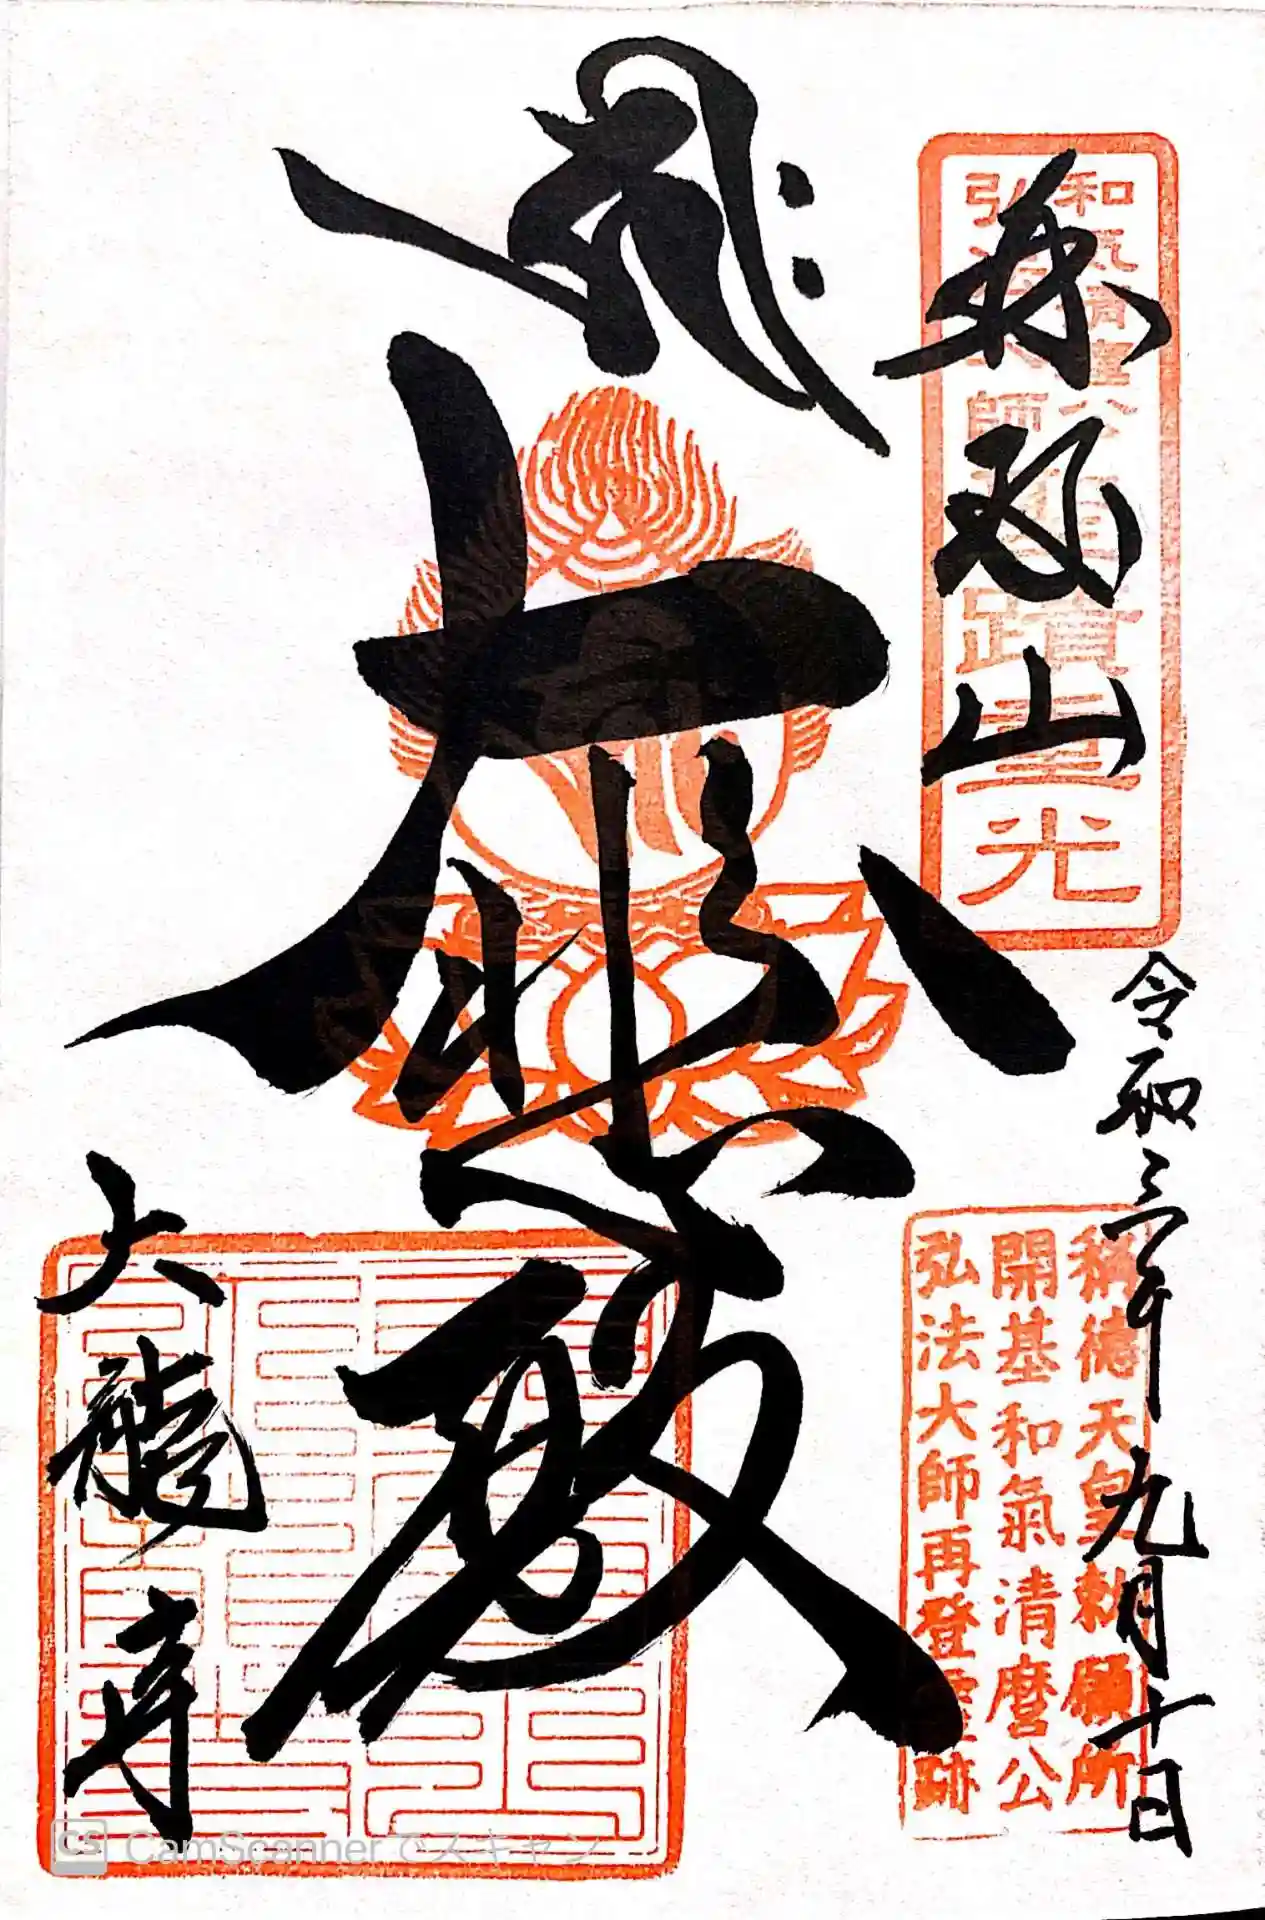 和氣清麿公
弘法大師
蹟重光
再度山
令和三年九月十日
稱德天皇勅願所
開基和氣清麿公
弘法大師再登靈跡
大悲殿
大龍寺
CS CamScannerでスキャン